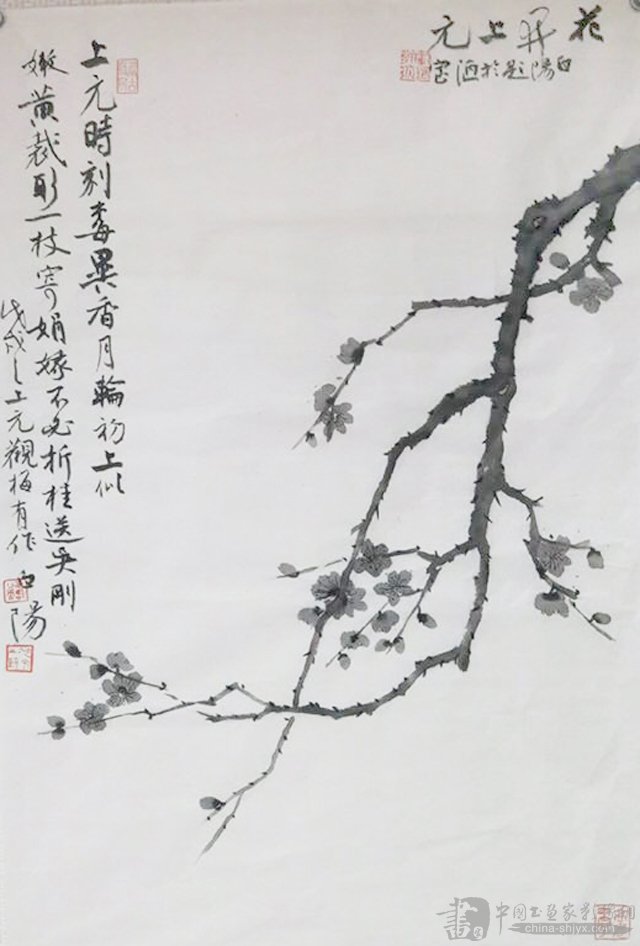 花開上元
白陽題於酒窖
上元時刻毒異香月輪初上似
嫩黄裁取一枝寄娟嫁不必折桂送吴剛
戊戌之上元觀梅有作 白陽
中国书画家影像网
china-shjyx.com